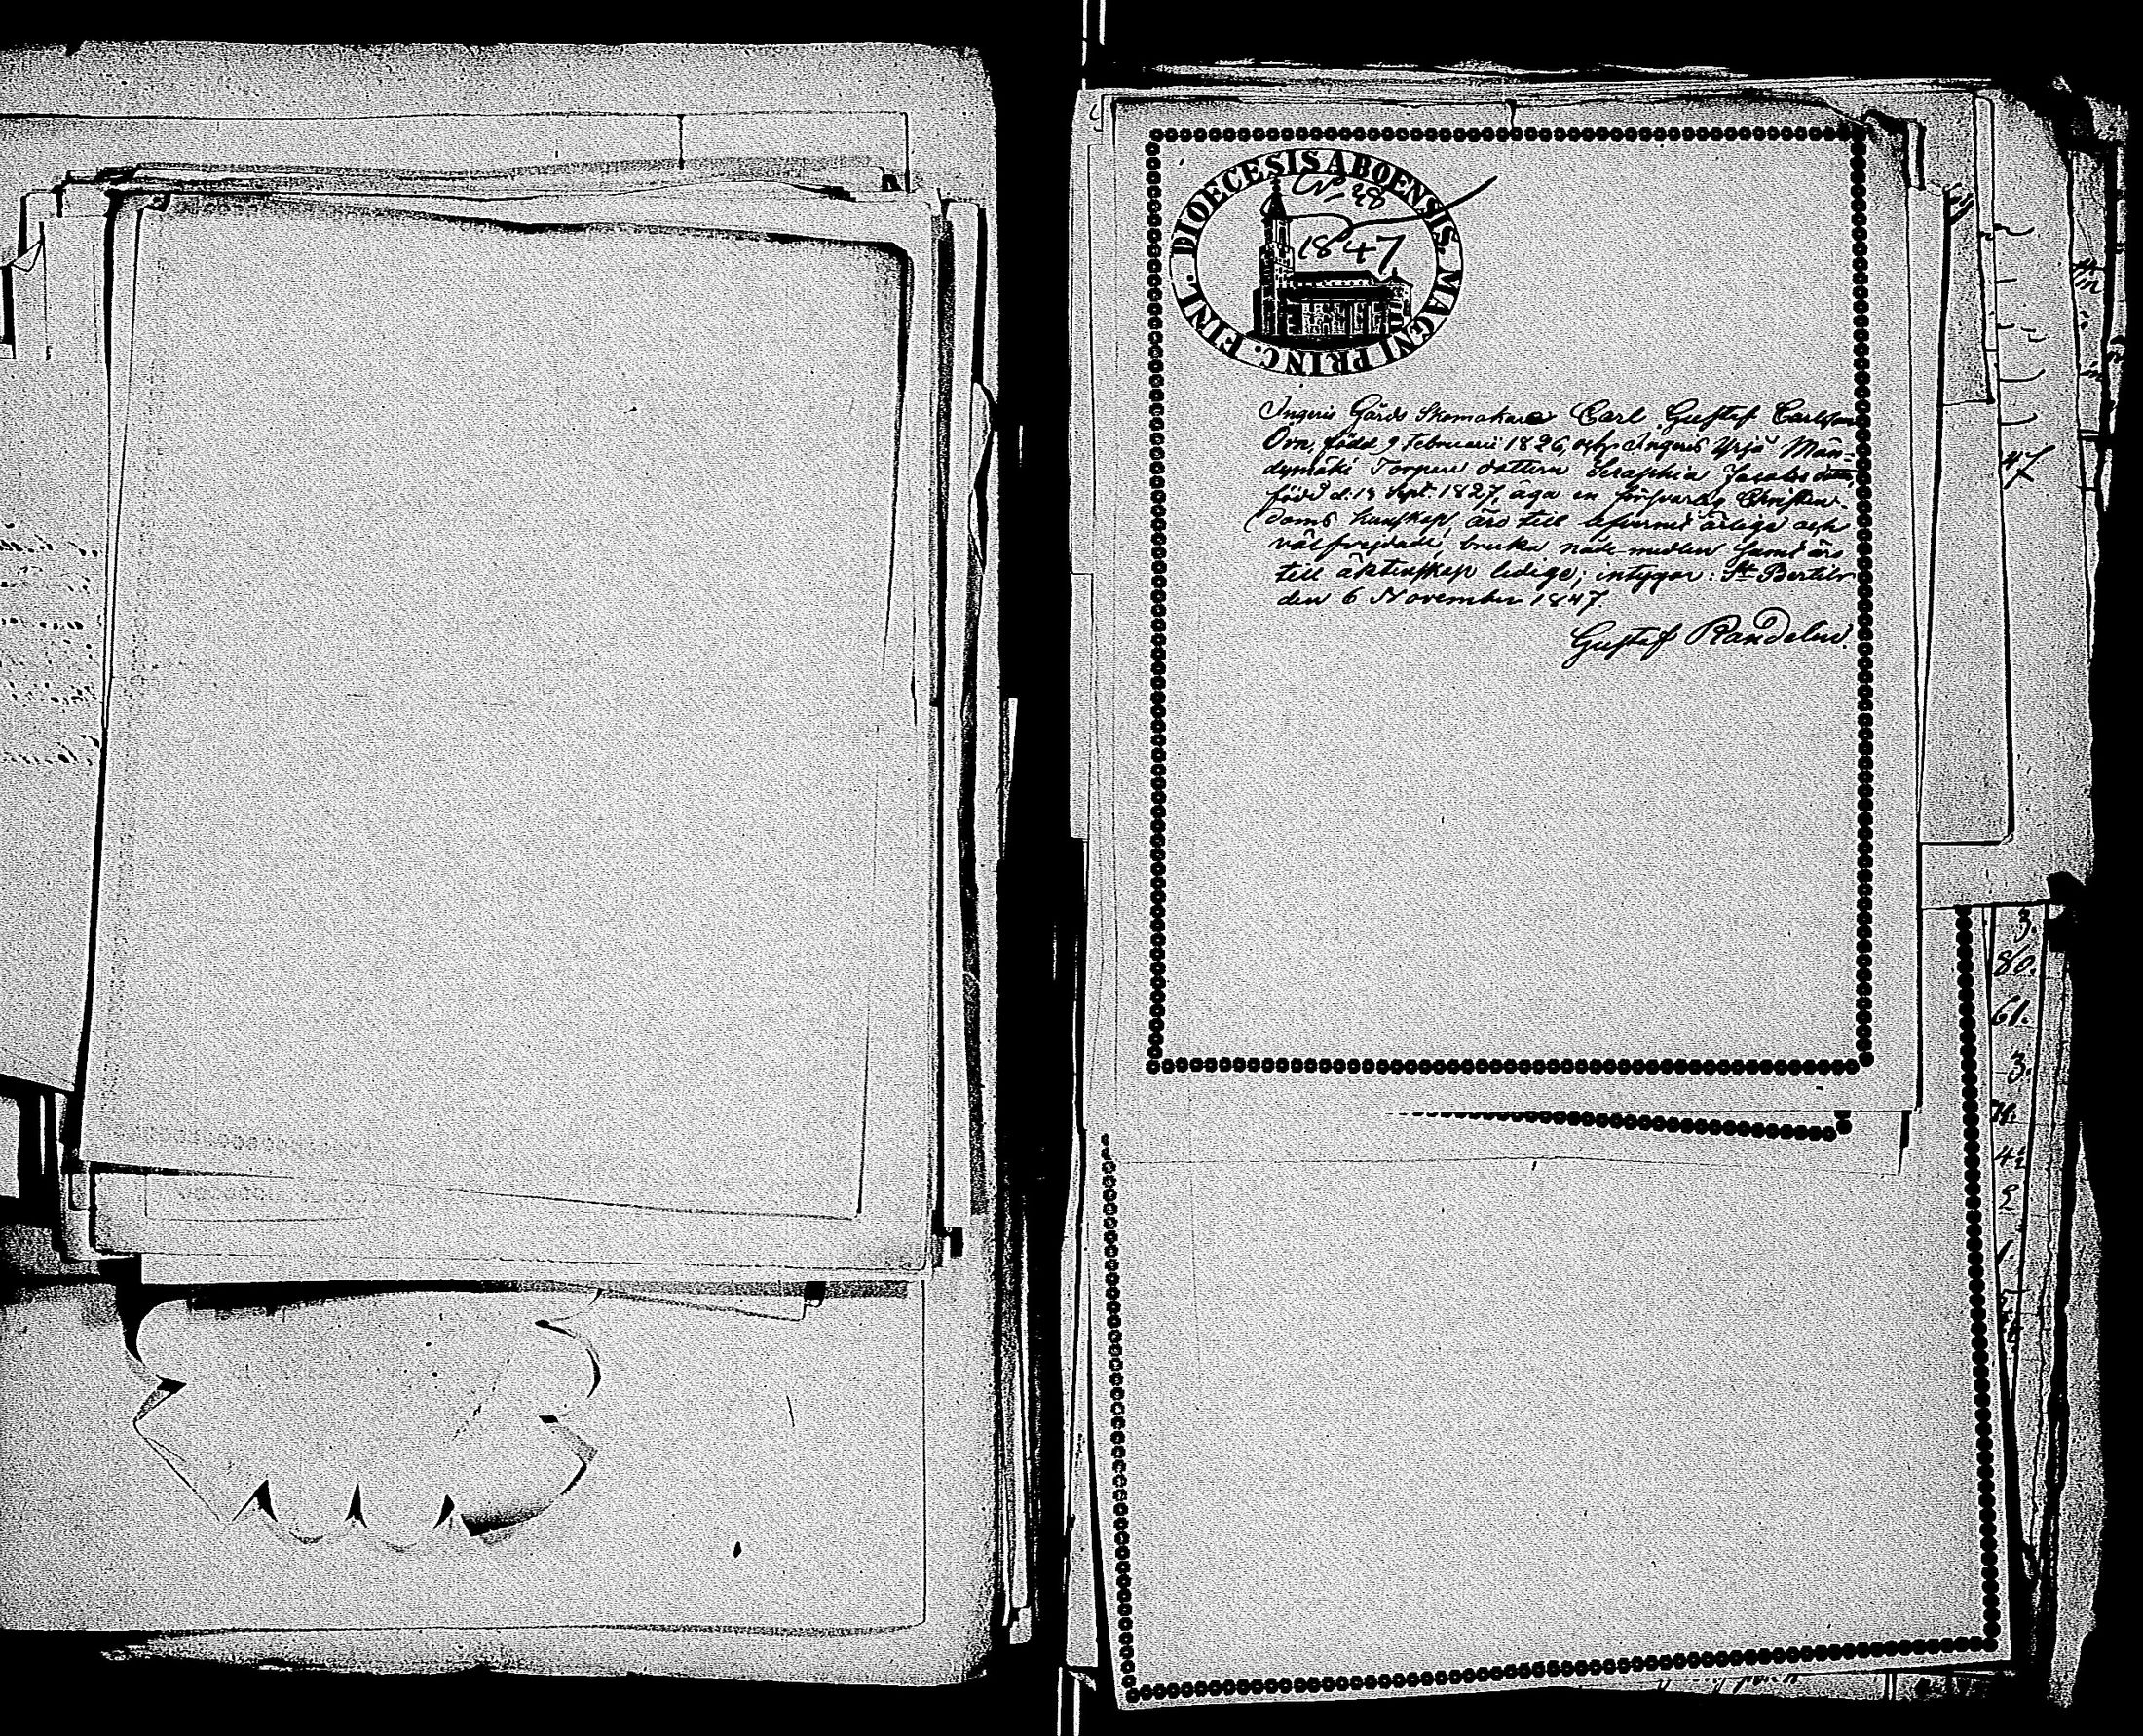 DIOECESIS ABOENSIS MAGNI PRINC. FINL.
No 38
1847
Ingeris Gårds Skomakare Carl Gustaf Carlsson
Örn, född 9 Februarii 1826, och Ingeris Yrjä Män-
dymäki Torpare dottern Seraphia Jacobsdotter,
född d. 13 Sept. 1827, äga en försvarlig Christen-
doms kunskap, äro till lefvernet ärlige och
välfrejdade, bruka nåde-medlen samt äro
till äktenskap ledige; intygar: St Bertils
den 6 November 1847.
Gustaf Randelin.
47
3.
80.
61.
3.